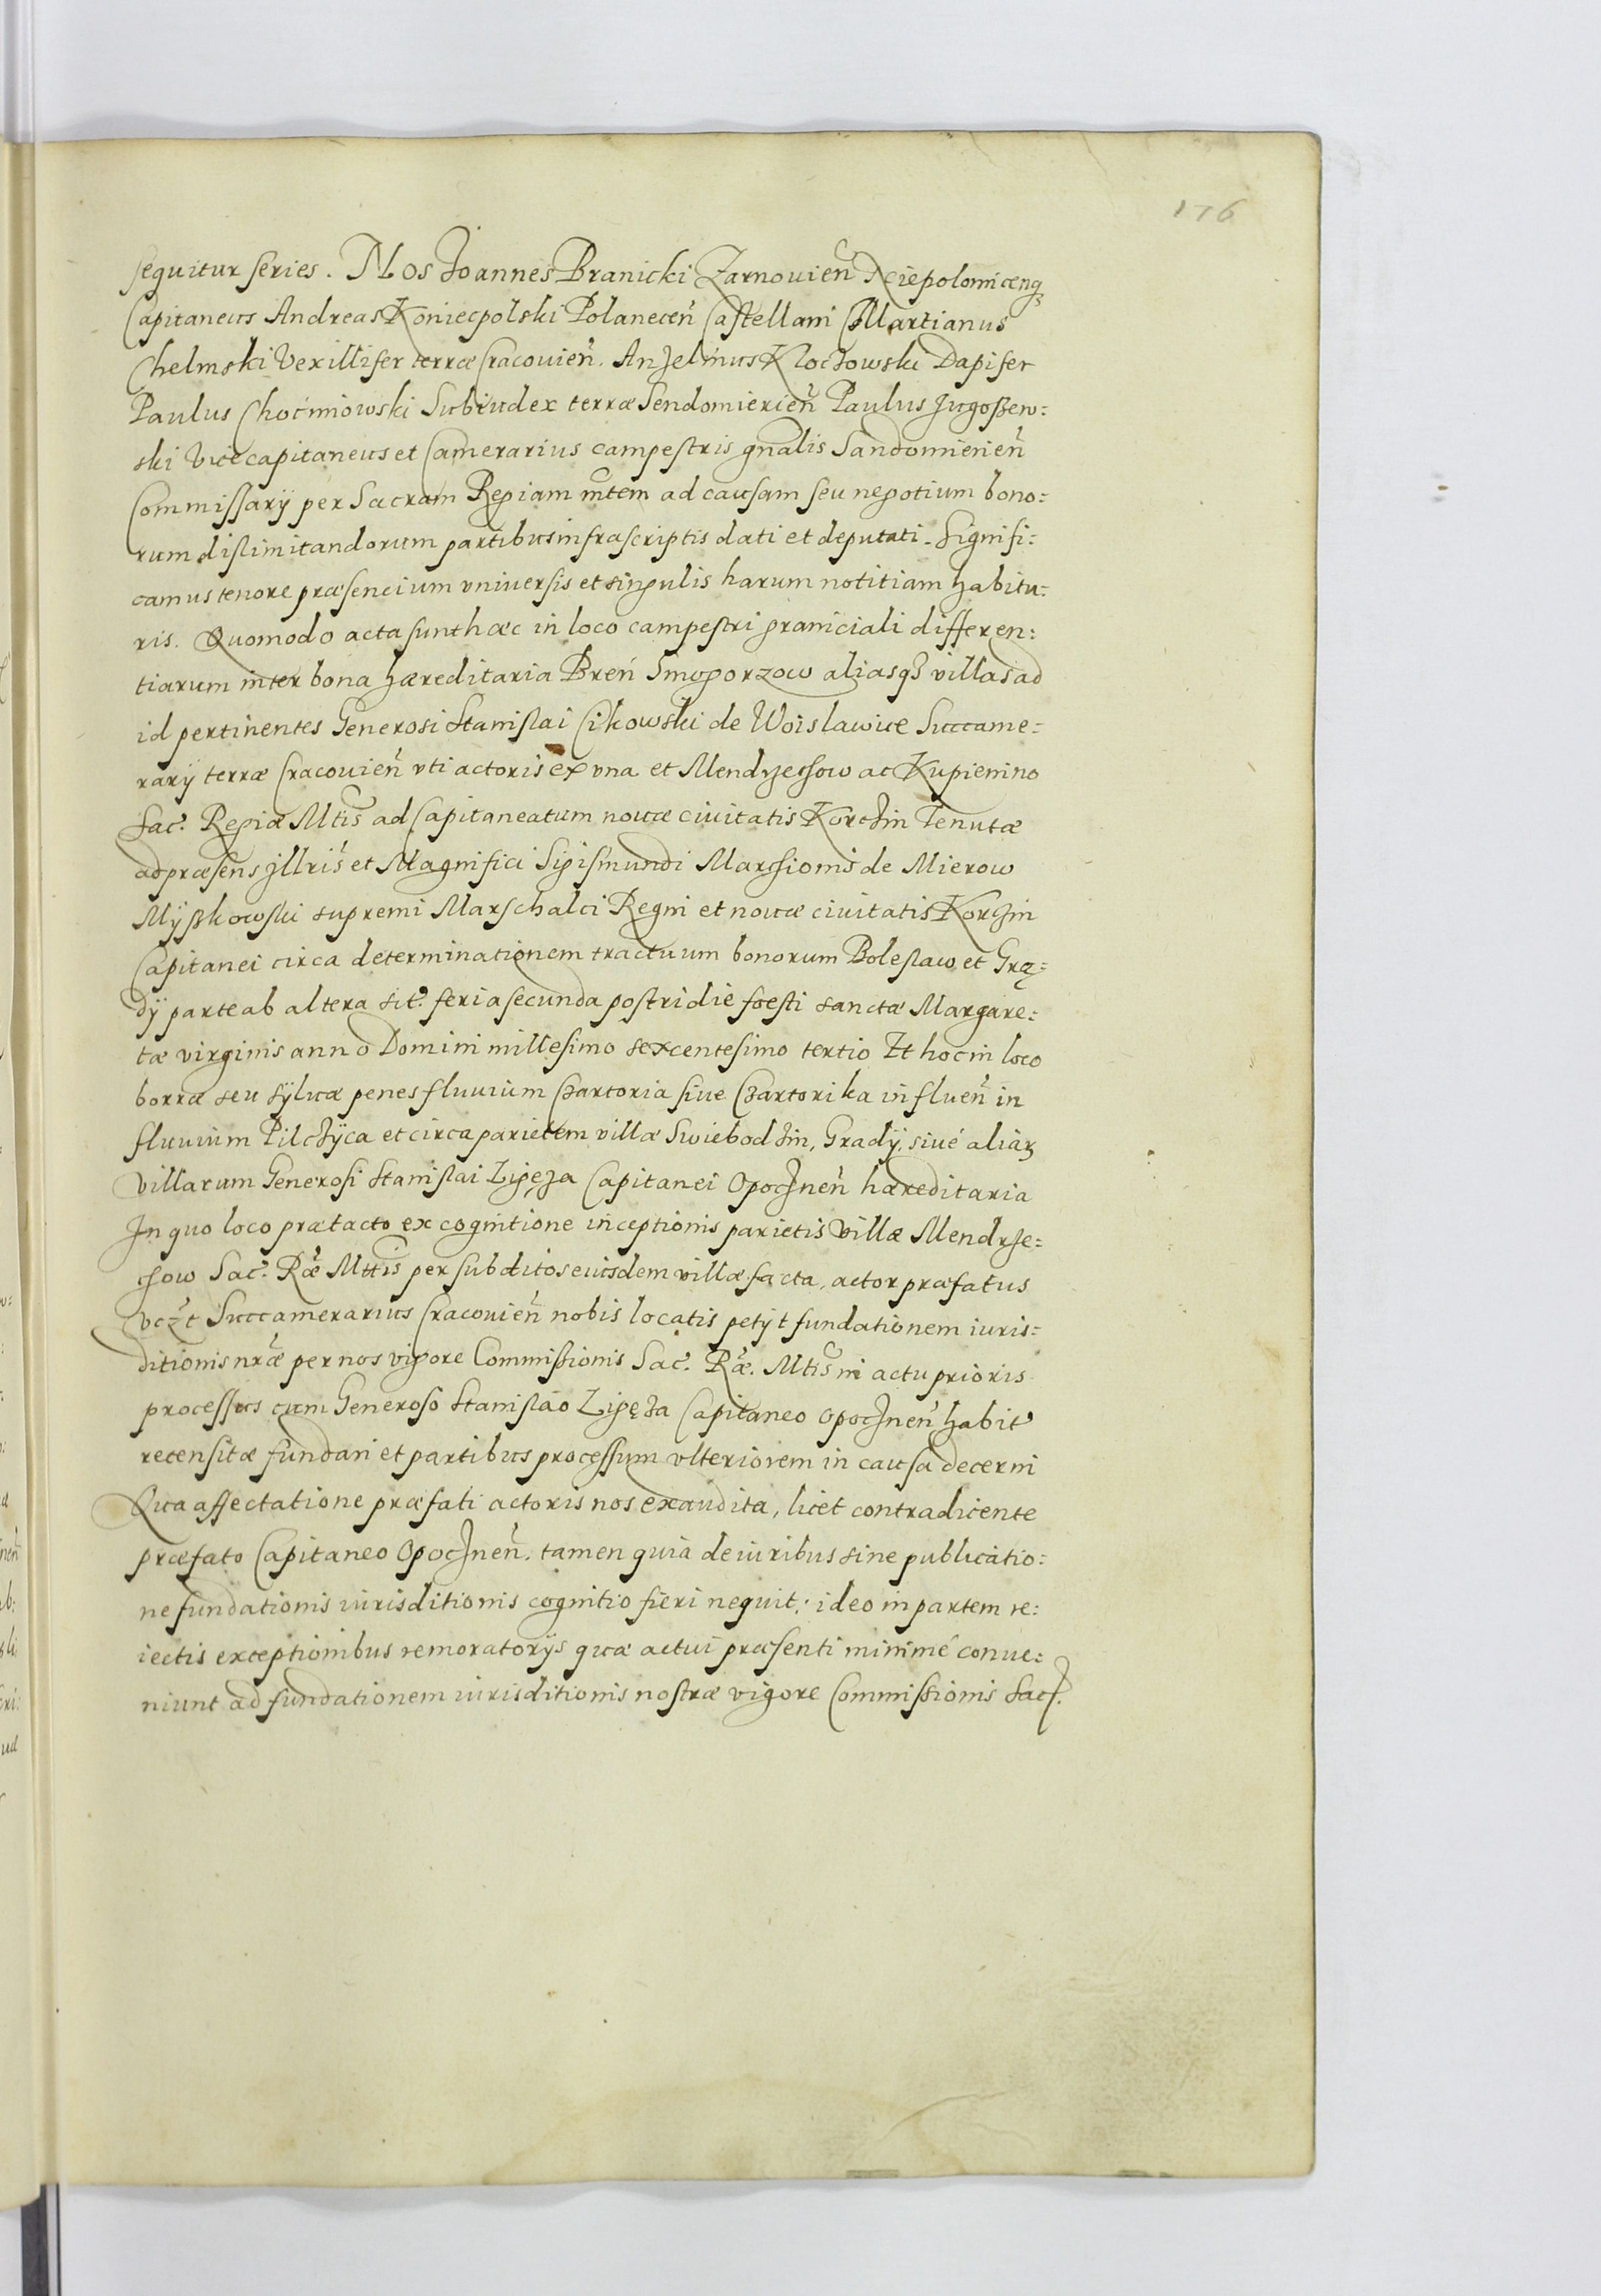 176
sequitur series. Nos Joannes Branicki Zarnovień Niepolomiceńq3
Capitaneus Andreas Koniecpolski Polaneceń Castellani Martianus
Chelmski Vexillifer terræ Cracovień. Anzelmus Kloczowski Dapifer
Paulus Choćmiowski Subiudex terræ Sendomierień Paulus Jugoszew:
ski Vicecapitaneus et Camerarius campestris gnalis Sandomierień
Commissarÿ per Sacram Regiam mtem ad causam seu negotium bono:
rum dislimitandorum partibus infrascriptis dati et deputati. Signifi:
camus tenore præsencium vniversis et singulis harum notitiam habitu:
ris. Quomodo acta sunt hæc in loco campestri graniciali differen:
tiarum inter bona hæreditaria Breń Smogorzow aliasq3 villas ad
id pertinentes Generosi Stanislai Cikowski de Woislawice Succame:
rarÿ terræ Cracovień vti actoris ex vna et Mendrzechow ac Kupienino
Sac. Regiæ Mtis ad Capitaneatum novæ civitatis Korczin Tenutæ
ad præsens Jllris et Magnifici Sigismundi Marchionis de Mierow
Mÿszkowski supremi Marschalci Regni et novæ civitatis Korczin
Capitanei circa determinationem tractuum bonorum Boleslaw et Grą:
dÿ parte ab altera sit. feria secunda postridie foesti sanctæ Margare:
tæ virginis anno Domini millesimo sexcentesimo tertio Et hoc in loco
borræ seu sÿlvæ penes fluvium Czartoria sive Czartorika influeń in
fluvium Pilczÿca et circa parietem villæ Swiebodzin, Gradÿ, sivé aliar
villarum Generosi Stanislai Ligęza Capitanei Opoczneń hæreditaria
In quo loco prætacto ex cognitione inceptionis parietis villæ Mendrze:
chow Sac. Ræ Mttis per subditos eiusdem villæ facta, actor præfatus
vczt Succamerarius Cracovień nobis locatis petÿt fundationem iuris:
ditionis nræ per nos vigore Commissionis Sac. Ræ. Mtis in actu prioris
processus cum Generoso Stanislao Ligęza Capitaneo Opoczneń habit
recensitæ fundari et partibus processum vlteriorem in causa decerni
Qua affectatione præfati actoris nos exaudita, licet contradicente
præfato Capitaneo Opoczneń. tamen quia de iuribus sine publicatio:
ne fundationis iurisditionis cognitio fieri nequit; ideo in partem re:
iectis exceptionibus remoratorÿs quæ actui præsenti minimé conve:
niunt ad fundationem iurisditionis nostræ vigore Commissionis Sacr.